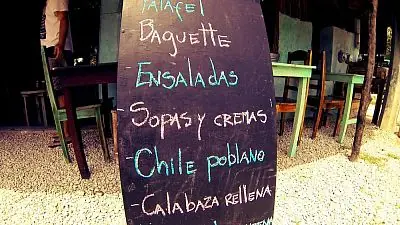 Falafel
Baguette
Ensaladas
-Sopas y cremas
-Chile poblano
-Calabaza rellena